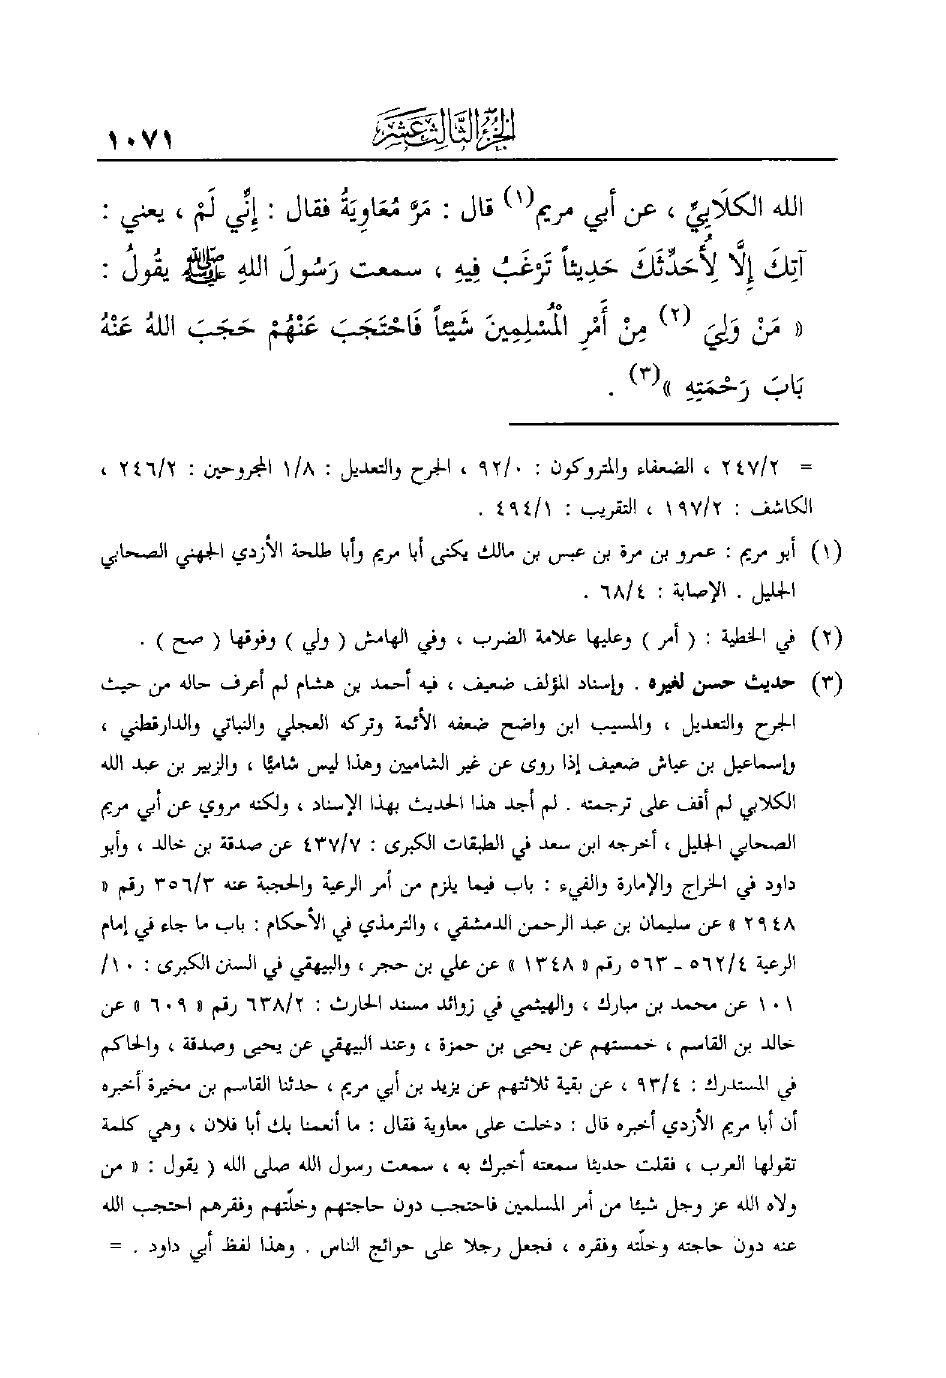 الجزء الثالث عشر ١٠٧١
الله الكلَابِيِّ ، عن أبي مريم(١) قال : مَرَّ مُعَاوِيَةُ فقال : إِنِّي لَمْ ، يعني :
آتِكَ إِلَّا لِأُحَدِّثَكَ حَدِيثاً تَرْغَبُ فِيهِ ، سمعت رَسُولَ اللهِ ﷺ يقُولُ :
« مَنْ وَلِيَ (٢) مِنْ أَمْرِ الْمُسْلِمِينَ شَيْئاً فَاحْتَجَبَ عَنْهُمْ حَجَبَ اللهُ عَنْهُ
بَابَ رَحْمَتِهِ »(٣) .
= ٢٤٧/٢ ، الضعفاء والمتروكون : ٩٢/٠ ، الجرح والتعديل : ١/٨ المجروحين : ٢٤٦/٢ ،
الكاشف : ١٩٧/٢ ، التقريب : ٤٩٤/١ .
(١) أبو مريم : عمرو بن مرة بن عبس بن مالك يكنى أبا مريم وأبا طلحة الأزدي الجهني الصحابي
الجليل . الإصابة : ٦٨/٤ .
(٢) في الخطية : ( أمر ) وعليها علامة الضرب ، وفي الهامش ( ولي ) وفوقها ( صح ) .
(٣) حديث حسن لغيره . وإسناد المؤلف ضعيف ، فيه أحمد بن هشام لم أعرف حاله من حيث
الجرح والتعديل ، والمسيب ابن واضح ضعفه الأئمة وتركه العجلي والنباتي والدارقطني ،
وإسماعيل بن عياش ضعيف إذا روى عن غير الشاميين وهذا ليس شاميًا ، والزبير بن عبد الله
الكلابي لم أقف على ترجمته . لم أجد هذا الحديث بهذا الإسناد ، ولكنه مروي عن أبي مريم
الصحابي الجليل ، أخرجه ابن سعد في الطبقات الكبرى : ٤٣٧/٧ عن صدقة بن خالد ، وأبو
داود في الخراج والإمارة والفيء : باب فيما يلزم من أمر الرعية والحجبة عنه ٣٥٦/٣ رقم «
٢٩٤٨ » عن سليمان بن عبد الرحمن الدمشقي ، والترمذي في الأحكام : باب ما جاء في إمام
الرعية ٥٦٢/٤ ـ ٥٦٣ رقم « ١٣٤٨ » عن علي بن حجر ، والبيهقي في السنن الكبرى : ١٠/
١٠١ عن محمد بن مبارك ، والهيثمي في زوائد مسند الحارث : ٦٣٨/٢ رقم « ٦٠٩ » عن
خالد بن القاسم ، خمستهم عن يحيى بن حمزة ، وعند البيهقي عن يحيى وصدقة ، والحاكم
في المستدرك : ٩٣/٤ ، عن بقية ثلاثتهم عن يزيد بن أبي مريم ، حدثنا القاسم بن مخيرة أخبره
أن أبا مريم الأزدي أخبره قال : دخلت على معاوية فقال : ما أنعمنا بك أبا فلان ، وهي كلمة
تقولها العرب ، فقلت حديثا سمعته أخبرك به ، سمعت رسول الله صلى الله ( يقول : « من
ولاه الله عز وجل شيئا من أمر المسلمين فاحتجب دون حاجتهم وخلّتهم وفقرهم احتجب الله
عنه دون حاجته وخلّته وفقره ، فجعل رجلا على حوائج الناس . وهذا لفظ أبي داود . =